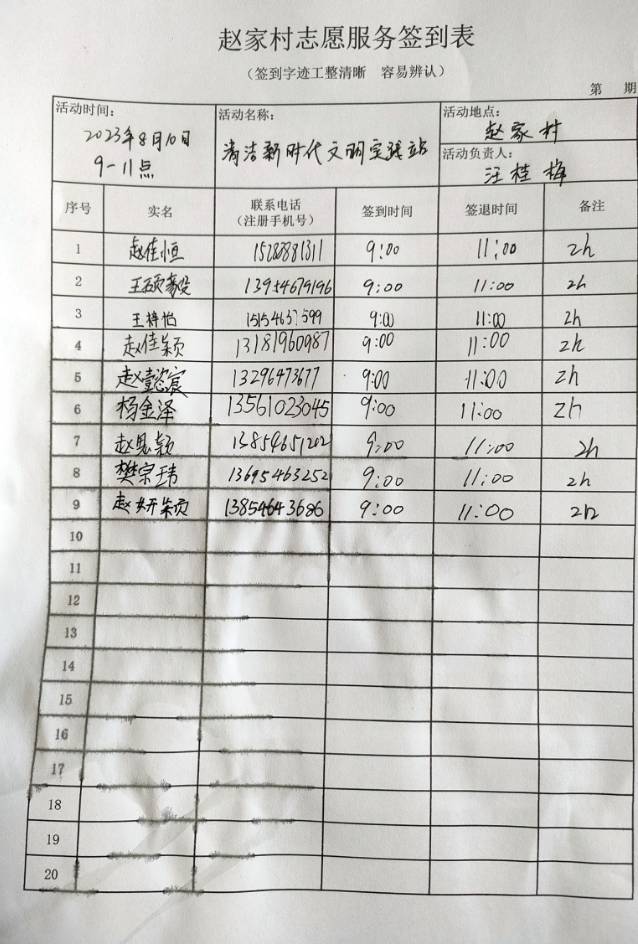 赵家村志愿服务签到表
（签到字迹工整清晰 容易辨认）
第 期
活动时间：
2023年8月10日
9-11点
活动名称：
清洁新时代文明实践站
活动地点：
赵家村
活动负责人：
汪桂梅
序号 实名 联系电话（注册手机号） 签到时间 签退时间 备注
1 赵佳恒 9:00 11:00 2h
2 王硕毅 13954679196 9:00 11:00 2h
3 王梓怡 9:00 11:00 2h
4 赵佳颖 13181960987 9:00 11:00 2h
5 赵懿宸 13296473677 9:00 11:00 2h
6 杨金泽 13561023045 9:00 11:00 2h
7 赵思颖 13854651202 9:00 11:00 2h
8 樊宗玮 13695463252 9:00 11:00 2h
9 赵妍颖 13854643686 9:00 11:00 2h
10
11
12
13
14
15
16
17
18
19
20